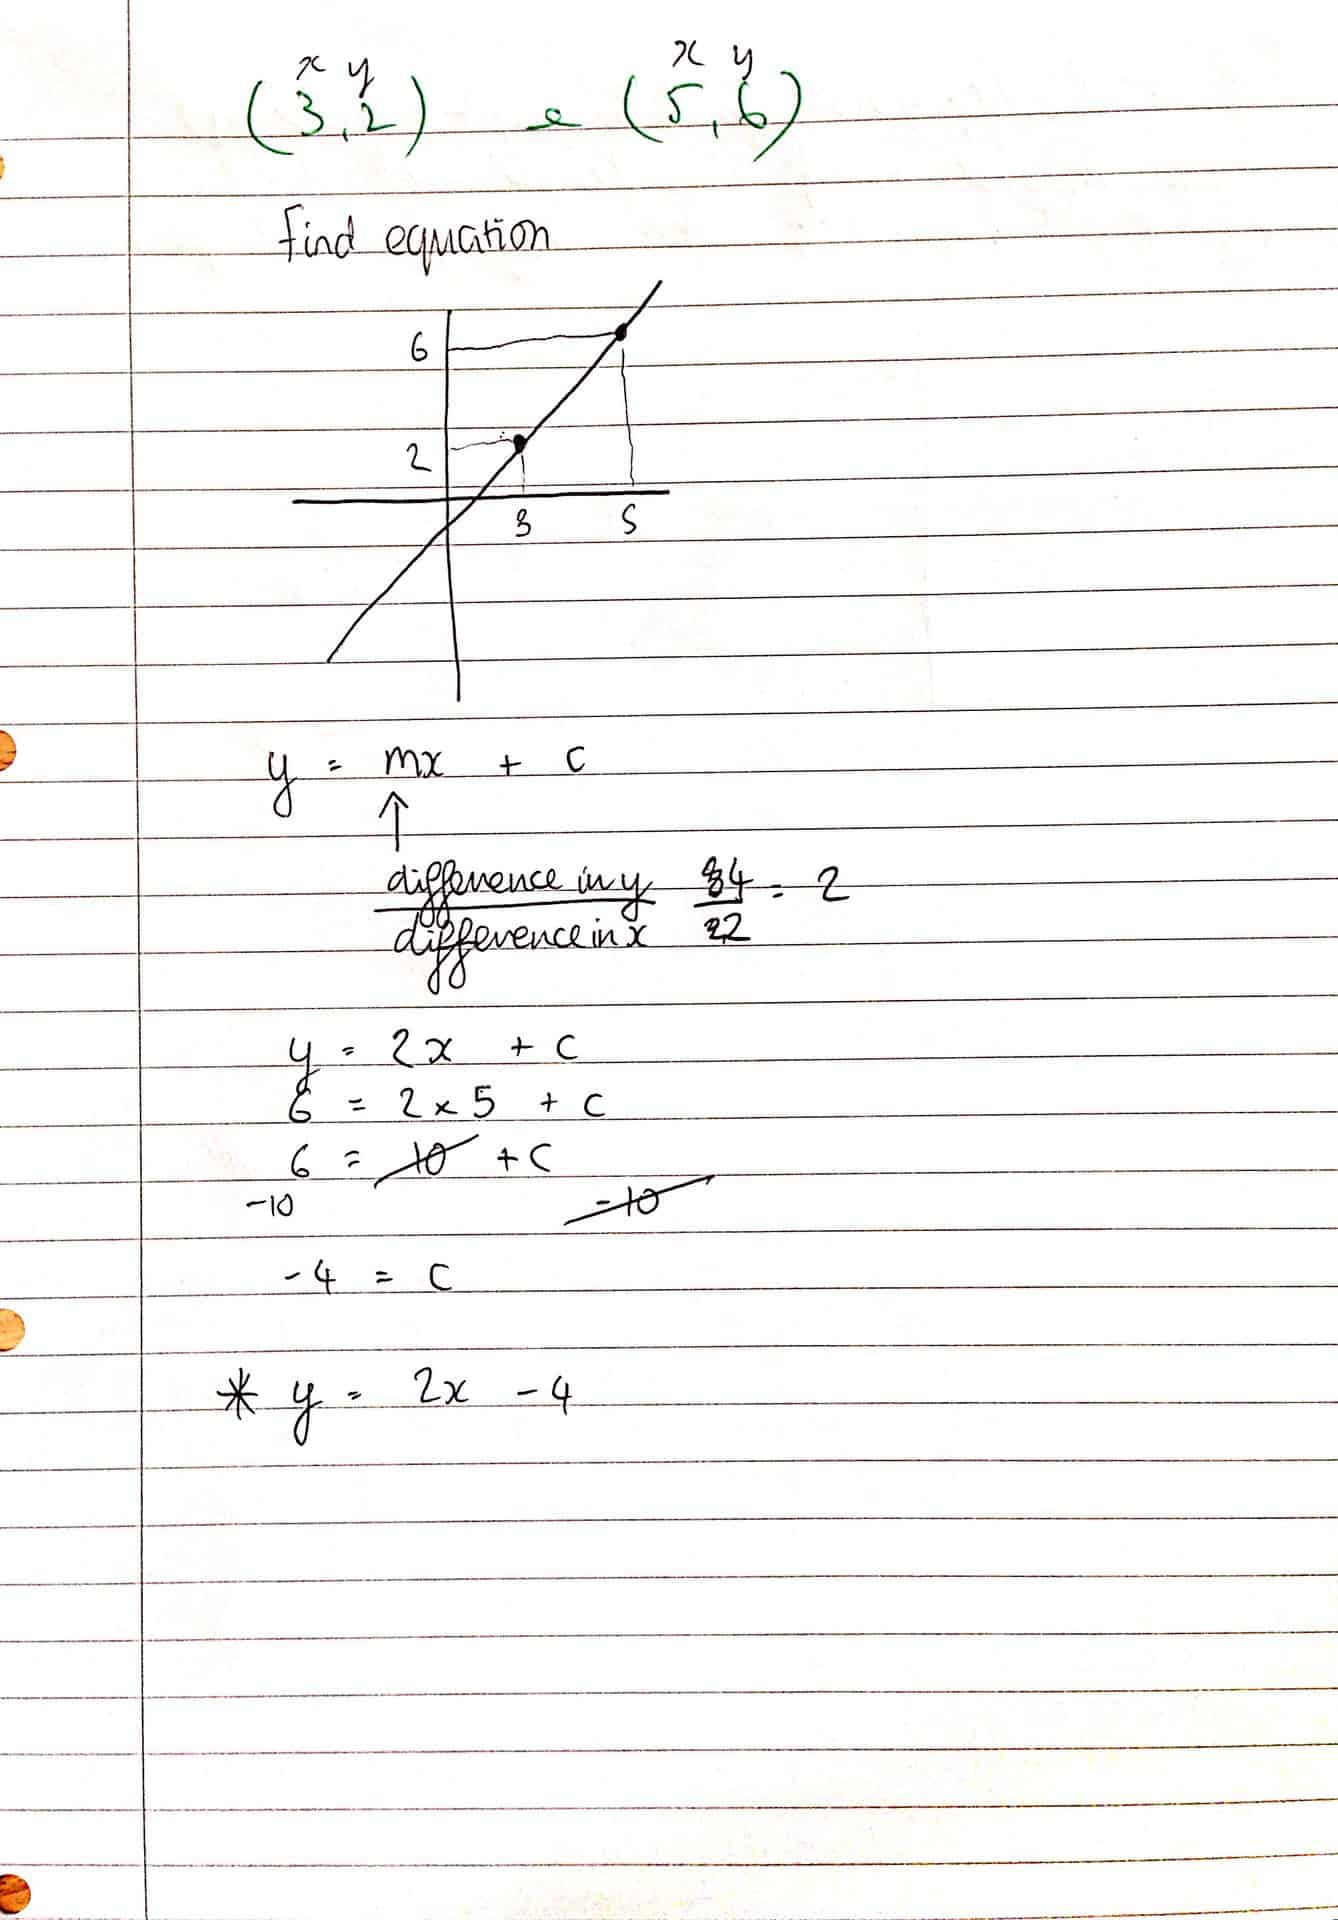 x y x y
(3,2) e (5,6)
Find equation
6
2
3 5
y = mx + c
↑
difference in y 4 = 2
difference in x 2
y = 2x + c
6 = 2 × 5 + c
6 = 10 + c
-10 -10
-4 = c
* y = 2x - 4